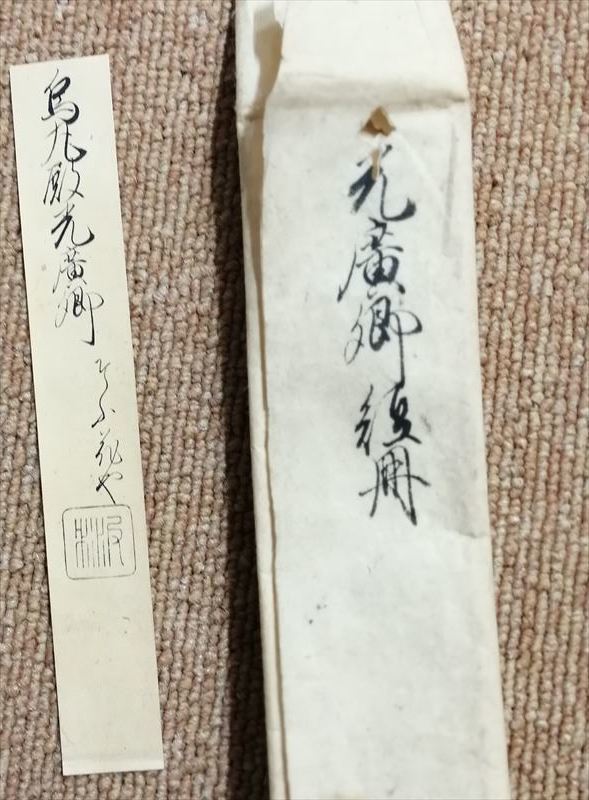 光廣卿短冊
烏丸殿光廣卿
花や